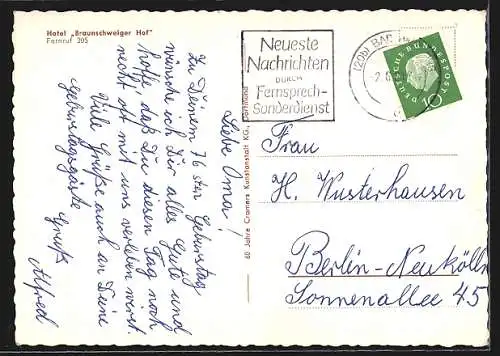 Hotel „Braunschweiger Hof“
Fernruf 205
Liebe Oma!
Zu Deinem 76 sten Geburtstag
wünsche ich Dir alles Gute und
hoffe, daß Du diesen Tag noch
recht oft mit uns verleben wirst.
Viele Grüße auch an Deine
Geburtstagsgäste
Gruß
Alfred
60 Jahre Cramers Kunstanstalt KG., Dortmund
Neueste
Nachrichten
DURCH
Fernsprech-
Sonderdienst
(20b) BAD
DEUTSCHE BUNDESPOST
10
Frau
H. Wusterhausen
Berlin-Neukölln
Sonnenallee 45